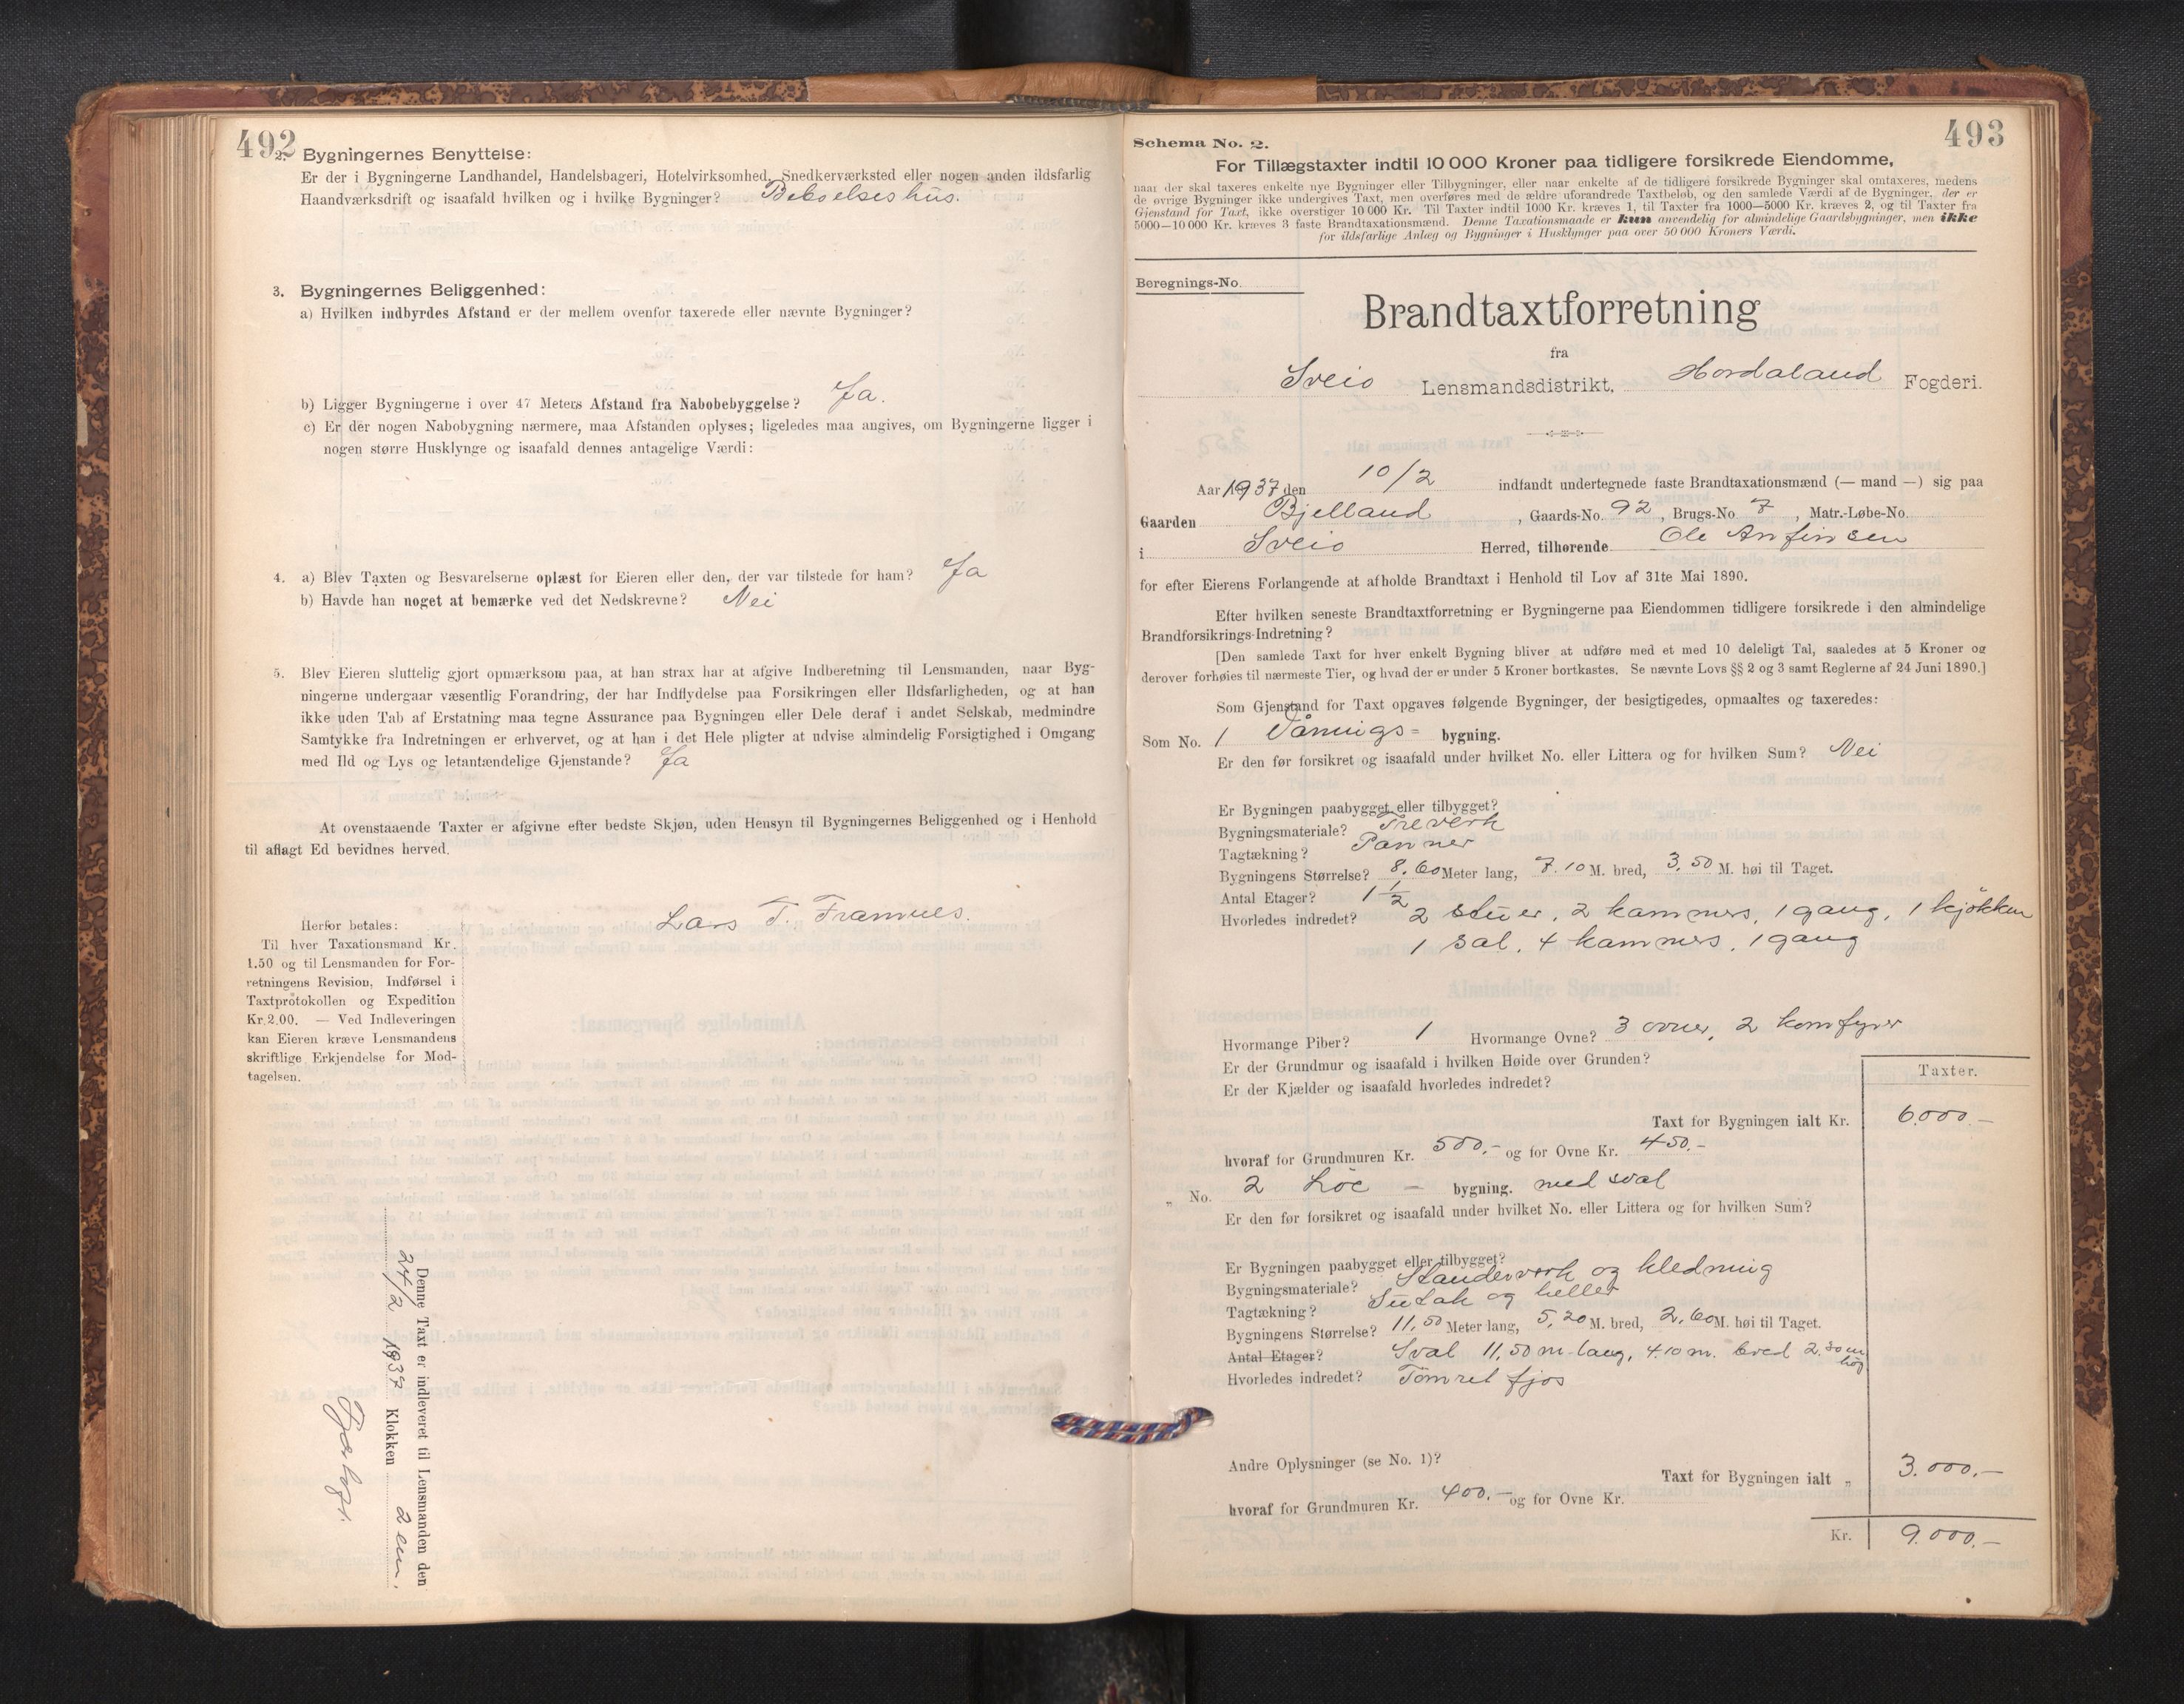 492
2. Bygningernes Benyttelse:
Er der i Bygningerne Landhandel, Handelsbageri, Hotelvirksomhed, Snedkerværksted eller nogen anden ildsfarlig
Haandværksdrift og isaafald hvilken og i hvilke Bygninger? Beboelseshus.
3. Bygningernes Beliggenhed:
a) Hvilken indbyrdes Afstand er der mellem ovenfor taxerede eller nævnte Bygninger?
b) Ligger Bygningerne i over 47 Meters Afstand fra Nabobebyggelse? Ja.
c) Er der nogen Nabobygning nærmere, maa Afstanden oplyses; ligeledes maa angives, om Bygningerne ligger i
nogen større Husklynge og isaafald dennes antagelige Værdi:
4. a) Blev Taxten og Besvarelserne oplæst for Eieren eller den, der var tilstede for ham? Ja
b) Havde han noget at bemærke ved det Nedskrevne? Nei
5. Blev Eieren sluttelig gjort opmærksom paa, at han strax har at afgive Indberetning til Lensmanden, naar Byg-
ningerne undergaar væsentlig Forandring, der har Indflydelse paa Forsikringen eller Ildsfarligheden, og at han
ikke uden Tab af Erstatning maa tegne Assurance paa Bygningen eller Dele deraf i andet Selskab, medmindre
Samtykke fra Indretningen er erhvervet, og at han i det Hele pligter at udvise almindelig Forsigtighed i Omgang
med Ild og Lys og letantændelige Gjenstande? Ja
At ovenstaaende Taxter er afgivne efter bedste Skjøn, uden Hensyn til Bygningernes Beliggenhed og i Henhold
til aflagt Ed bevidnes herved.
Lars T. Framnes.
Herfor betales:
Til hver Taxationsmand Kr.
1.50 og til Lensmanden for For-
retningens Revision, Indførsel i
Taxtprotokollen og Expedition
Kr. 2.00. — Ved Indleveringen
kan Eieren kræve Lensmandens
skriftlige Erkjendelse for Mod-
tagelsen.
Denne Taxt er indleveret til Lensmanden den
24/2 1937 Klokken 2 em.
493
Schema No. 2.
For Tillægstaxter indtil 10 000 Kroner paa tidligere forsikrede Eiendomme,
naar der skal taxeres enkelte nye Bygninger eller Tilbygninger, eller naar enkelte af de tidligere forsikrede Bygninger skal omtaxeres, medens
de øvrige Bygninger ikke undergives Taxt, men overføres med de ældre uforandrede Taxtbeløb, og den samlede Værdi af de Bygninger, der er
Gjenstand for Taxt, ikke overstiger 10 000 Kr. Til Taxter indtil 1000 Kr. kræves 1, til Taxter fra 1000—5000 Kr. kræves 2, og til Taxter fra
5000—10 000 Kr. kræves 3 faste Brandtaxationsmænd. Denne Taxationsmaade er kun anvendelig for almindelige Gaardsbygninger, men ikke
for ildsfarlige Anlæg og Bygninger i Husklynger paa over 50 000 Kroners Værdi.
Beregnings-No.
Brandtaxtforretning
fra
Sveio Lensmandsdistrikt, Hordaland Fogderi.
Aar 1937 den 10/2 indfandt undertegnede faste Brandtaxationsmænd (— mand —) sig paa
Gaarden Bjelland, Gaards-No. 92, Brugs-No. 7, Matr.-Løbe-No.
i Sveio Herred, tilhørende Ole Anfinsen
for efter Eierens Forlangende at afholde Brandtaxt i Henhold til Lov af 31te Mai 1890.
Efter hvilken seneste Brandtaxtforretning er Bygningerne paa Eiendommen tidligere forsikrede i den almindelige
Brandforsikrings-Indretning?
[Den samlede Taxt for hver enkelt Bygning bliver at udføre med et med 10 deleligt Tal, saaledes at 5 Kroner og
derover forhøies til nærmeste Tier, og hvad der er under 5 Kroner bortkastes. Se nævnte Lovs §§ 2 og 3 samt Reglerne af 24 Juni 1890.]
Som Gjenstand for Taxt opgaves følgende Bygninger, der besigtigedes, opmaaltes og taxeredes:
Som No. 1 Vånings- bygning.
Er den før forsikret og isaafald under hvilket No. eller Littera og for hvilken Sum? Nei
Er Bygningen paabygget eller tilbygget?
Bygningsmateriale? Treverk
Tagtækning? Panner
Bygningens Størrelse? 8.60 Meter lang, 7.10 M. bred, 3.50 M. høi til Taget.
Antal Etager? 1 1/2
Hvorledes indret? 2 stuer, 2 kammers, 1 gang, 1 kjøkken
1 sal, 4 kammers, 1 gang
Hvormange Piber? 1 Hvormange Ovne? 3 ovner, 2 komfyrer
Er der Grundmur og isaafald i hvilken Høide over Grunden?
Er der Kjælder og isaafald hvorledes indredet?
Taxter.
Taxt for Bygningen ialt Kr. 6.000.—
hvoraf for Grundmuren Kr. 500,- og for Ovne Kr. 450.-
„ No. 2 Løe - bygning. med sval
Er den før forsikret og isaafald under hvilket No. eller Littera og for hvilken Sum?
Er Bygningen paabygget eller tilbygget?
Bygningsmateriale? Standerverk og kledning
Tagtækning? Sutak og heller
Bygningens Størrelse? 11,50 Meter lang, 5,20 M. bred, 2,60 M. høi til Taget.
Antal Etager? Sval 11,50 m. lang, 4.10 m. bred 2.30 m høg
Hvorledes indredet? Tømret fjos
Andre Oplysninger (se No. 1)?
Taxt for Bygningen ialt „ 3.000.—
hvoraf for Grundmuren Kr. 400.- og for Ovne Kr.
Kr. 9.000.—